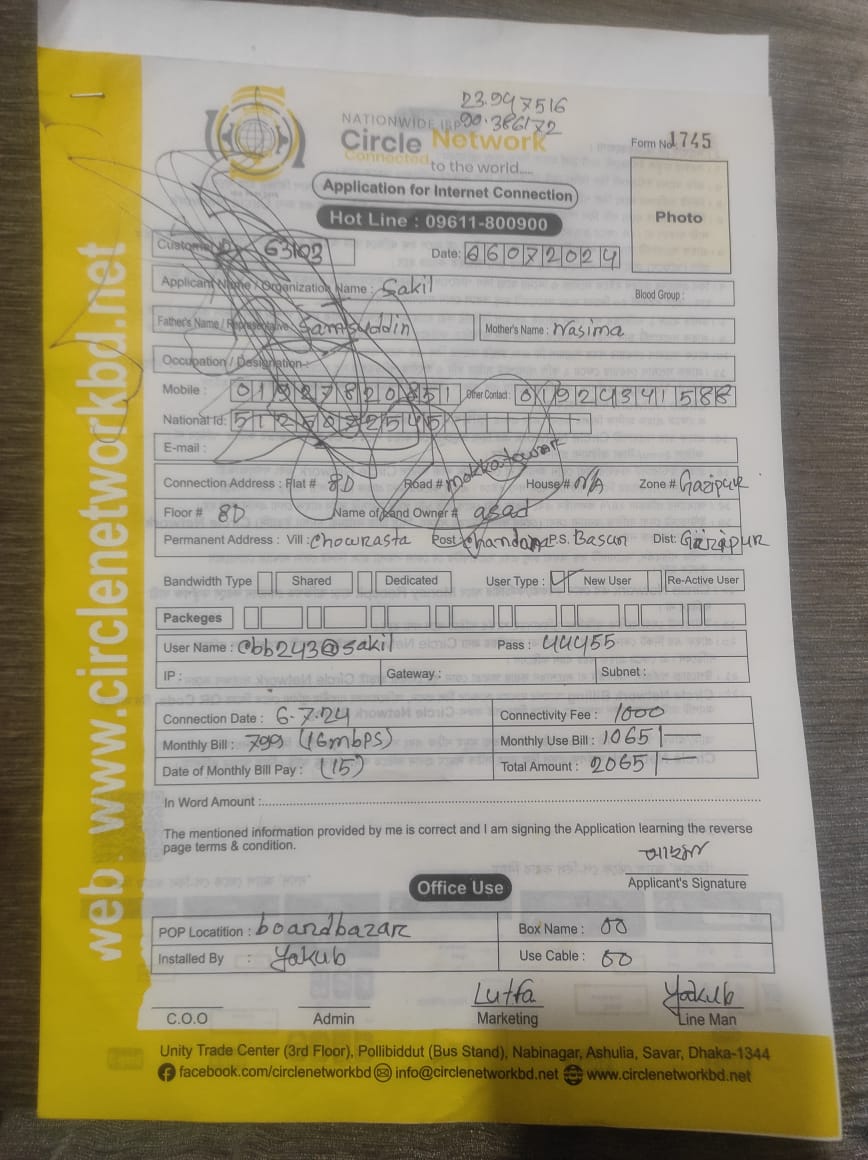 23.947516
90.386172
NATIONWIDE ISP
Circle Network
Connected to the world.....
Form No. 1745
Application for Internet Connection
Hot Line : 09611-800900
Photo
Customer ID 63103
Date: 06072024
Applicant Name / Organization Name : Sakil
Blood Group :
Father's Name / Representative Samsuddin Mother's Name : Nasima
Occupation / Designation :
Mobile : 01927820851 Other Contact : 01924341588
National Id:
E-mail :
Connection Address : Flat # 8D Road # mokka towar House # N/A Zone # Gazipur
Floor # 8D Name of Land Owner # asad
Permanent Address : Vill : Chowrasta Post : Chandona P.S. Basun Dist: Gazipur
Bandwidth Type Shared Dedicated User Type : ✓ New User Re-Active User
Packeges
User Name : cbb243@sakil Pass : 44455
IP : Gateway : Subnet :
Connection Date : 6-7-24 Connectivity Fee : 1000
Monthly Bill : 799 (16mbps) Monthly Use Bill : 1065/—
Date of Monthly Bill Pay : (15) Total Amount : 2065/—
In Word Amount :
The mentioned information provided by me is correct and I am signing the Application learning the reverse
page terms & condition.
Applicant's Signature
Office Use
POP Locatition : boardbazar Box Name : 00
Installed By : Yakub Use Cable : 00
Lutfa Yakub
C.O.O Admin Marketing Line Man
Unity Trade Center (3rd Floor), Pollibiddut (Bus Stand), Nabinagar, Ashulia, Savar, Dhaka-1344
facebook.com/circlenetworkbd info@circlenetworkbd.net www.circlenetworkbd.net
web : www.circlenetworkbd.net